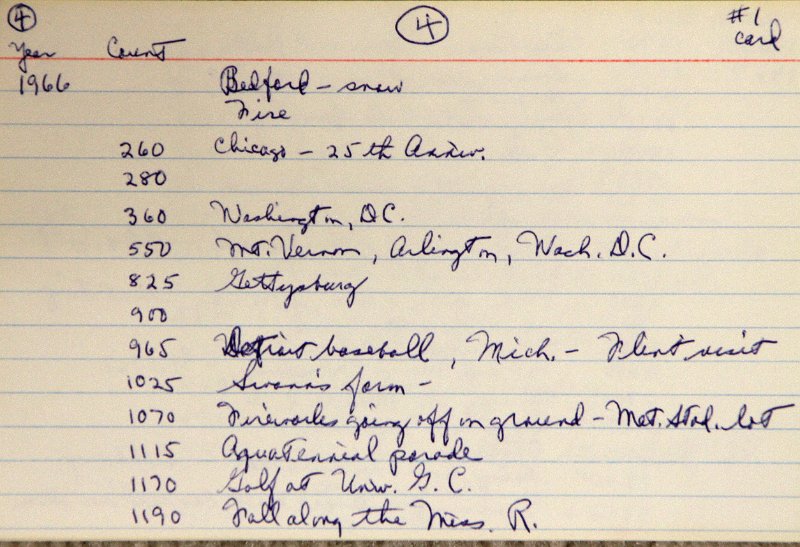 4 4 #1
card
Year Count
1966 Bedford - snow
Fire
260 Chicago - 25th Anniv.
280
360 Washington, D.C.
550 Mt. Vernon, Arlington, Wash. D.C.
825 Gettysburg
900
965 Detroit baseball, Mich. - Flint visit
1025 Swann's farm -
1070 Fireworks going off on ground - Met. Stad. lot
1115 Aquatennial parade
1170 Golf at Univ. G. C.
1190 Fall along the Miss. R.